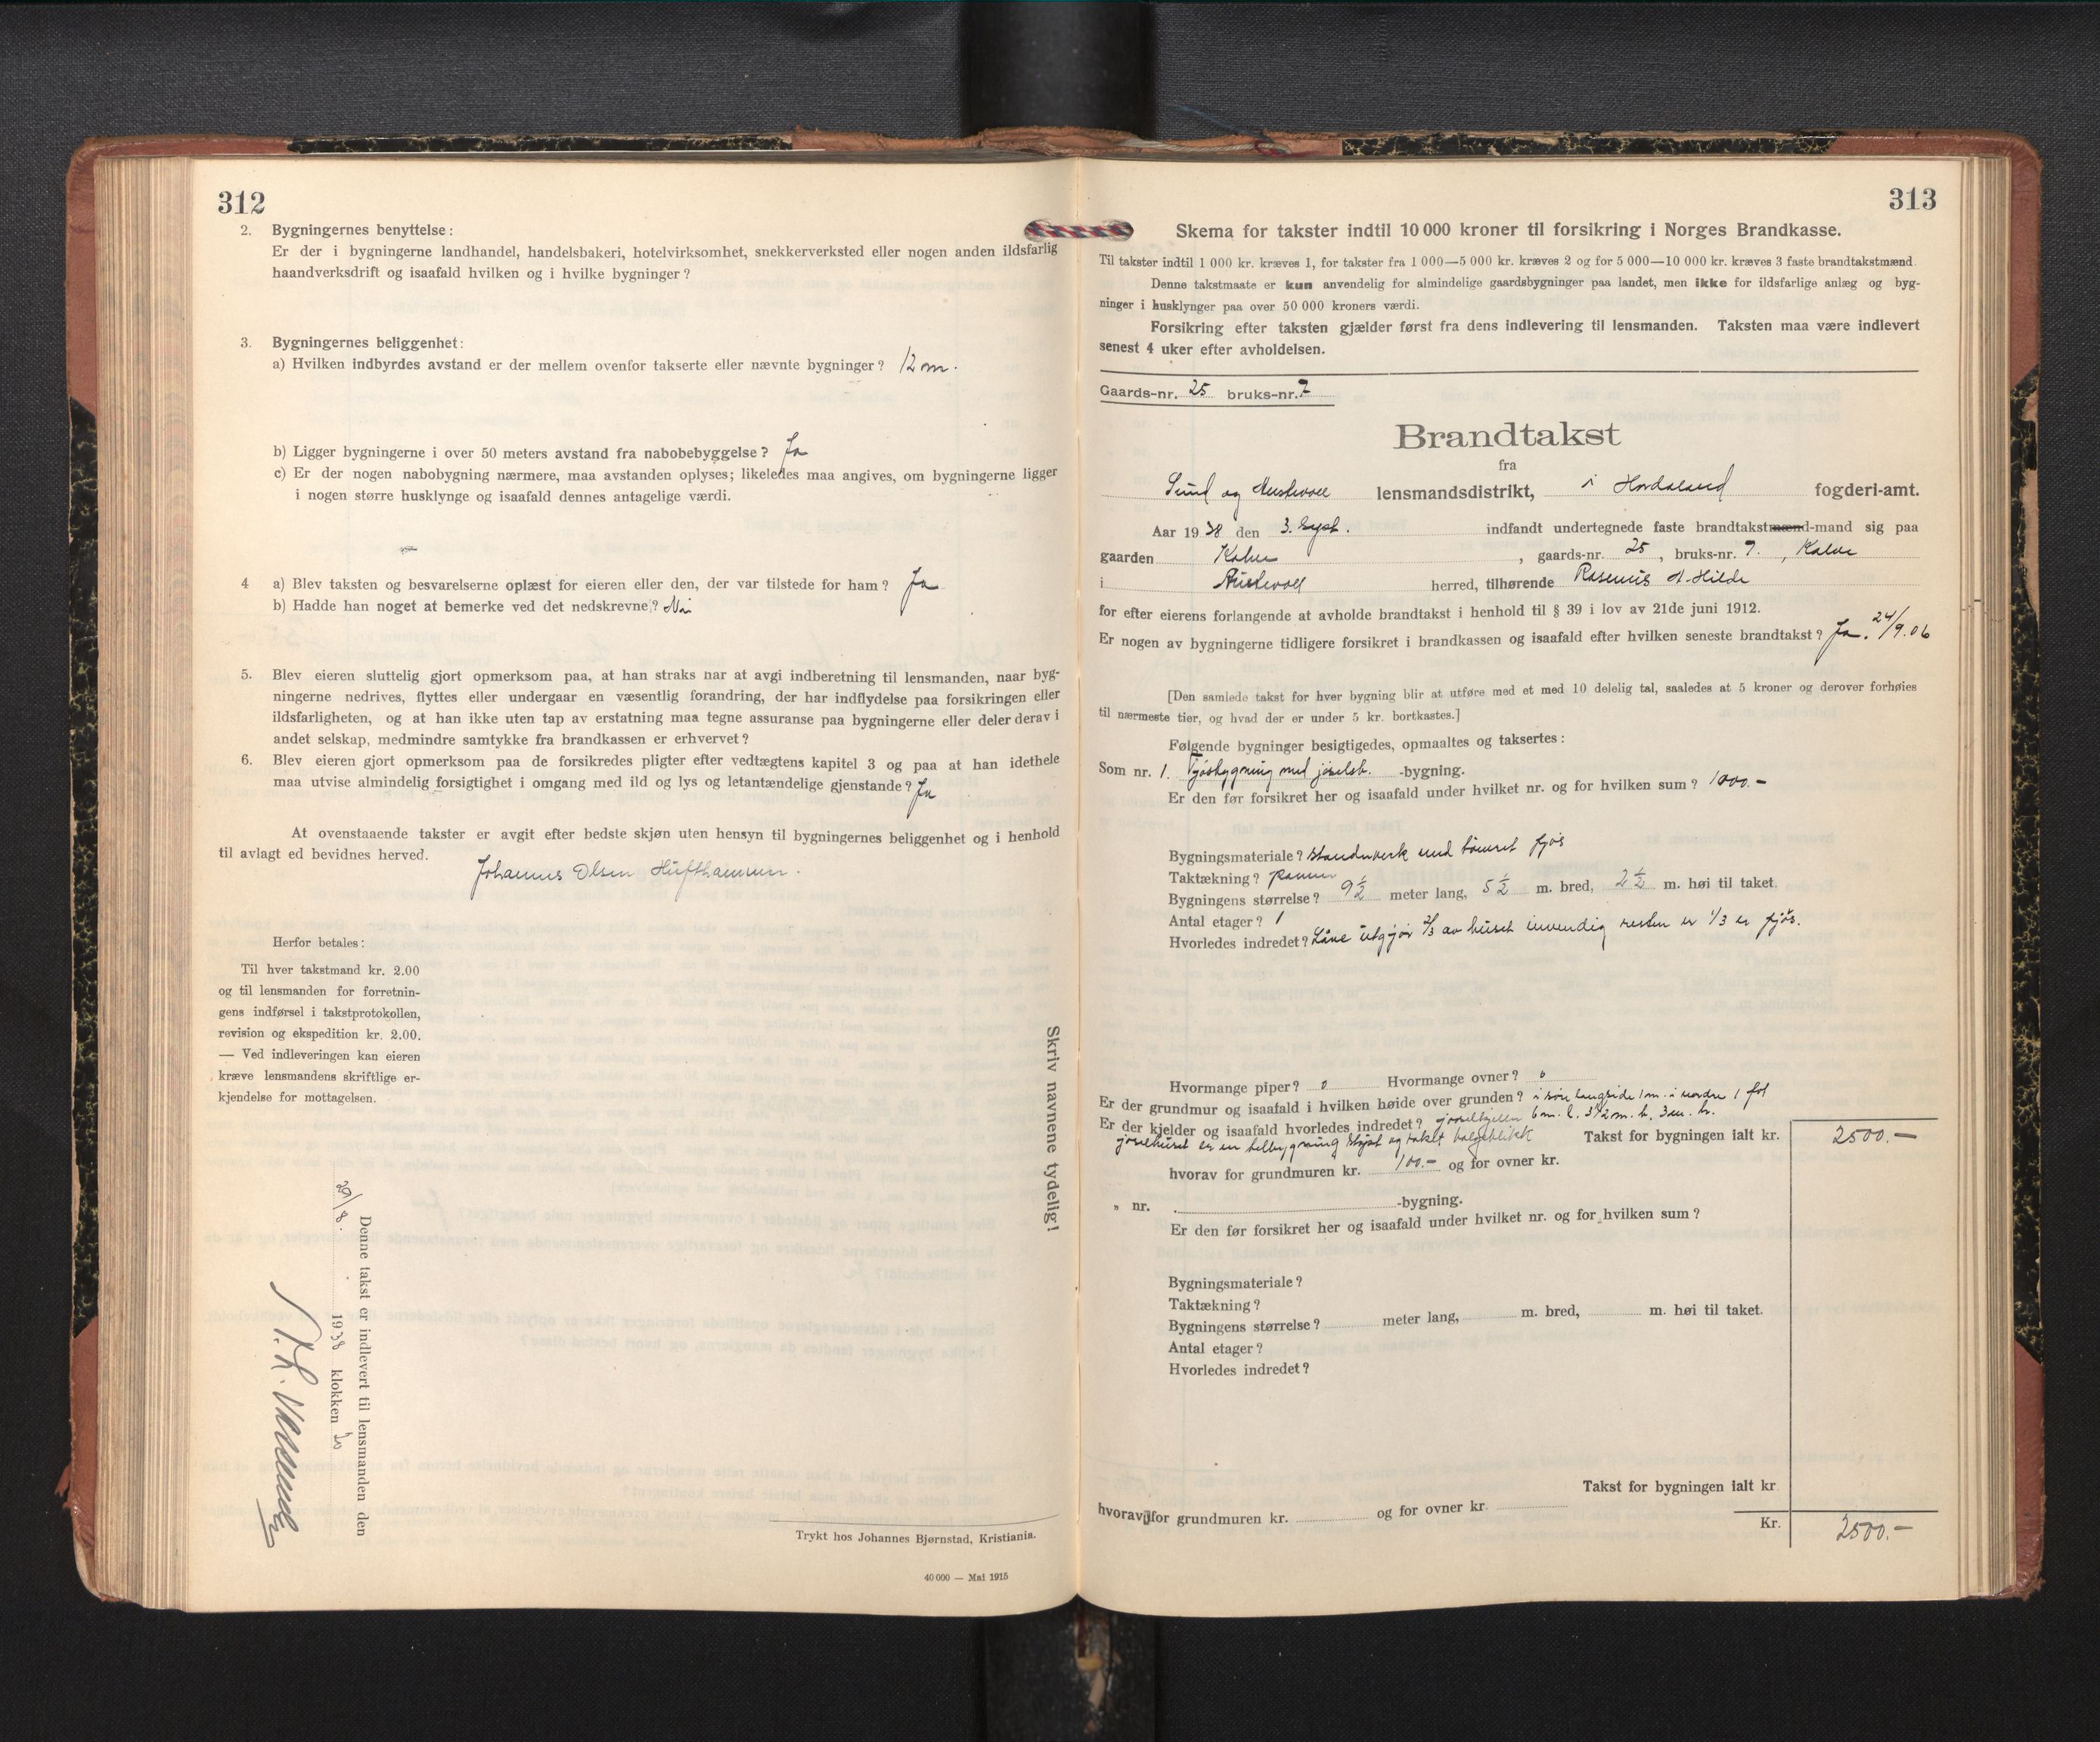 312
2. Bygningernes benyttelse:
Er der i bygningerne landhandel, handelsbakeri, hotelvirksomhet, snekkerverksted eller nogen anden ildsfarlig
haandverksdrift og isaafald hvilken og i hvilke bygninger?
3. Bygningernes beliggenhet:
a) Hvilken indbyrdes avstand er der mellem ovenfor takserte eller nævnte bygninger? 12 m.
b) Ligger bygningerne i over 50 meters avstand fra nabobebyggelse? Ja
c) Er der nogen nabobygning nærmere, maa avstanden oplyses; likeledes maa angives, om bygningerne ligger
i nogen større husklynge og isaafald dennes antagelige værdi.
4 a) Blev taksten og besvarelserne oplæst for eieren eller den, der var tilstede for ham? Ja
b) Hadde han noget at bemerke ved det nedskrevne? Nei
5. Blev eieren sluttelig gjort opmerksom paa, at han straks har at avgi indberetning til lensmanden, naar byg-
ningerne nedrives, flyttes eller undergaar en væsentlig forandring, der har indflydelse paa forsikringen eller
ildsfarligheten, og at han ikke uten tap av erstatning maa tegne assuranse paa bygningerne eller deler derav i
andet selskap, medmindre samtykke fra brandkassen er erhvervet?
6. Blev eieren gjort opmerksom paa de forsikredes pligter efter vedtægtens kapitel 3 og paa at han idethele
maa utvise almindelig forsigtighet i omgang med ild og lys og letantændelige gjenstande? Ja
At ovenstaaende takster er avgit efter bedste skjøn uten hensyn til bygningernes beliggenhet og i henhold
til avlagt ed bevidnes herved.
Johannes Olsen Hufthammer.
Herfor betales:
Til hver takstmand kr. 2.00
og til lensmanden for forretnin-
gens indførsel i takstprotokollen,
revision og ekspedition kr. 2.00.
— Ved indleveringen kan eieren
kræve lensmandens skriftlige er-
kjendelse for mottagelsen.
Skriv navnene tydelig!
Denne takst er indlevert til lensmanden den
29/8. 1938 klokken
Trykt hos Johannes Bjørnstad, Kristiania.
40 000 — Mai 1915
313
Skema for takster indtil 10 000 kroner til forsikring i Norges Brandkasse.
Til takster indtil 1 000 kr. kræves 1, for takster fra 1 000—5 000 kr. kræves 2 og for 5 000—10 000 kr. kræves 3 faste brandtakstmænd.
Denne takstmaate er kun anvendelig for almindelige gaardsbygninger paa landet, men ikke for ildsfarlige anlæg og byg-
ninger i husklynger paa over 50 000 kroners værdi.
Forsikring efter taksten gjælder først fra dens indlevering til lensmanden. Taksten maa være indlevert
senest 4 uker efter avholdelsen.
Gaards-nr. 25 bruks-nr. 7
Brandtakst
fra
Sund og Austevoll lensmandsdistrikt, i Hordaland fogderi-amt.
Aar 1938 den 3. Sept. indfandt undertegnede faste brandtakstmænd-mand sig paa
gaarden Kalve, gaards-nr. 25, bruks-nr. 7., Kalve
i Austevoll herred, tilhørende Rasmus H. Hilde
for efter eierens forlangende at avholde brandtakst i henhold til § 39 i lov av 21de juni 1912.
Er nogen av bygningerne tidligere forsikret i brandkassen og isaafald efter hvilken seneste brandtakst? Ja. 24/9.06
[Den samlede takst for hver bygning blir at utføre med et med 10 delelig tal, saaledes at 5 kroner og derover forhøies
til nærmeste tier, og hvad der er under 5 kr. bortkastes.]
Følgende bygninger besigtigedes, opmaaltes og taksertes:
Som nr. 1. Fjøsbygning med -bygning.
Er den før forsikret her og isaafald under hvilket nr. og for hvilken sum? 1000.-
Bygningsmateriale? standverk med tømret fjøs
Taktækning? panner
Bygningens størrelse? 9 1/2 meter lang, 5 1/2 m. bred, 2 1/2 m. høi til taket.
Antal etager? 1
Hvorledes indredet? Låve utgjør 2/3 av huset invendig resten er 1/3 er fjøs.
Hvormange piper? 0 Hvormange ovner? 0
Er der grundmur og isaafald i hvilken høide over grunden? i langside 1 m. i nordre 1 fot
Er der kjelder og isaafald hvorledes indredet? 6 m. l. 3 1/2 m. b. 3 m. h.
er en tilbygning og takt bølgeblikk Takst for bygningen ialt kr. 2500.—
hvorav for grundmuren kr. 100.— og for ovner kr.
" nr. -bygning.
Er den før forsikret her og isaafald under hvilket nr. og for hvilken sum?
Bygningsmateriale?
Taktækning?
Bygningens størrelse? meter lang, m. bred, m. høi til taket.
Antal etager?
Hvorledes indredet?
Takst for bygningen ialt kr
hvorav for grundmuren kr. og for ovner kr.
Kr. 2500.—